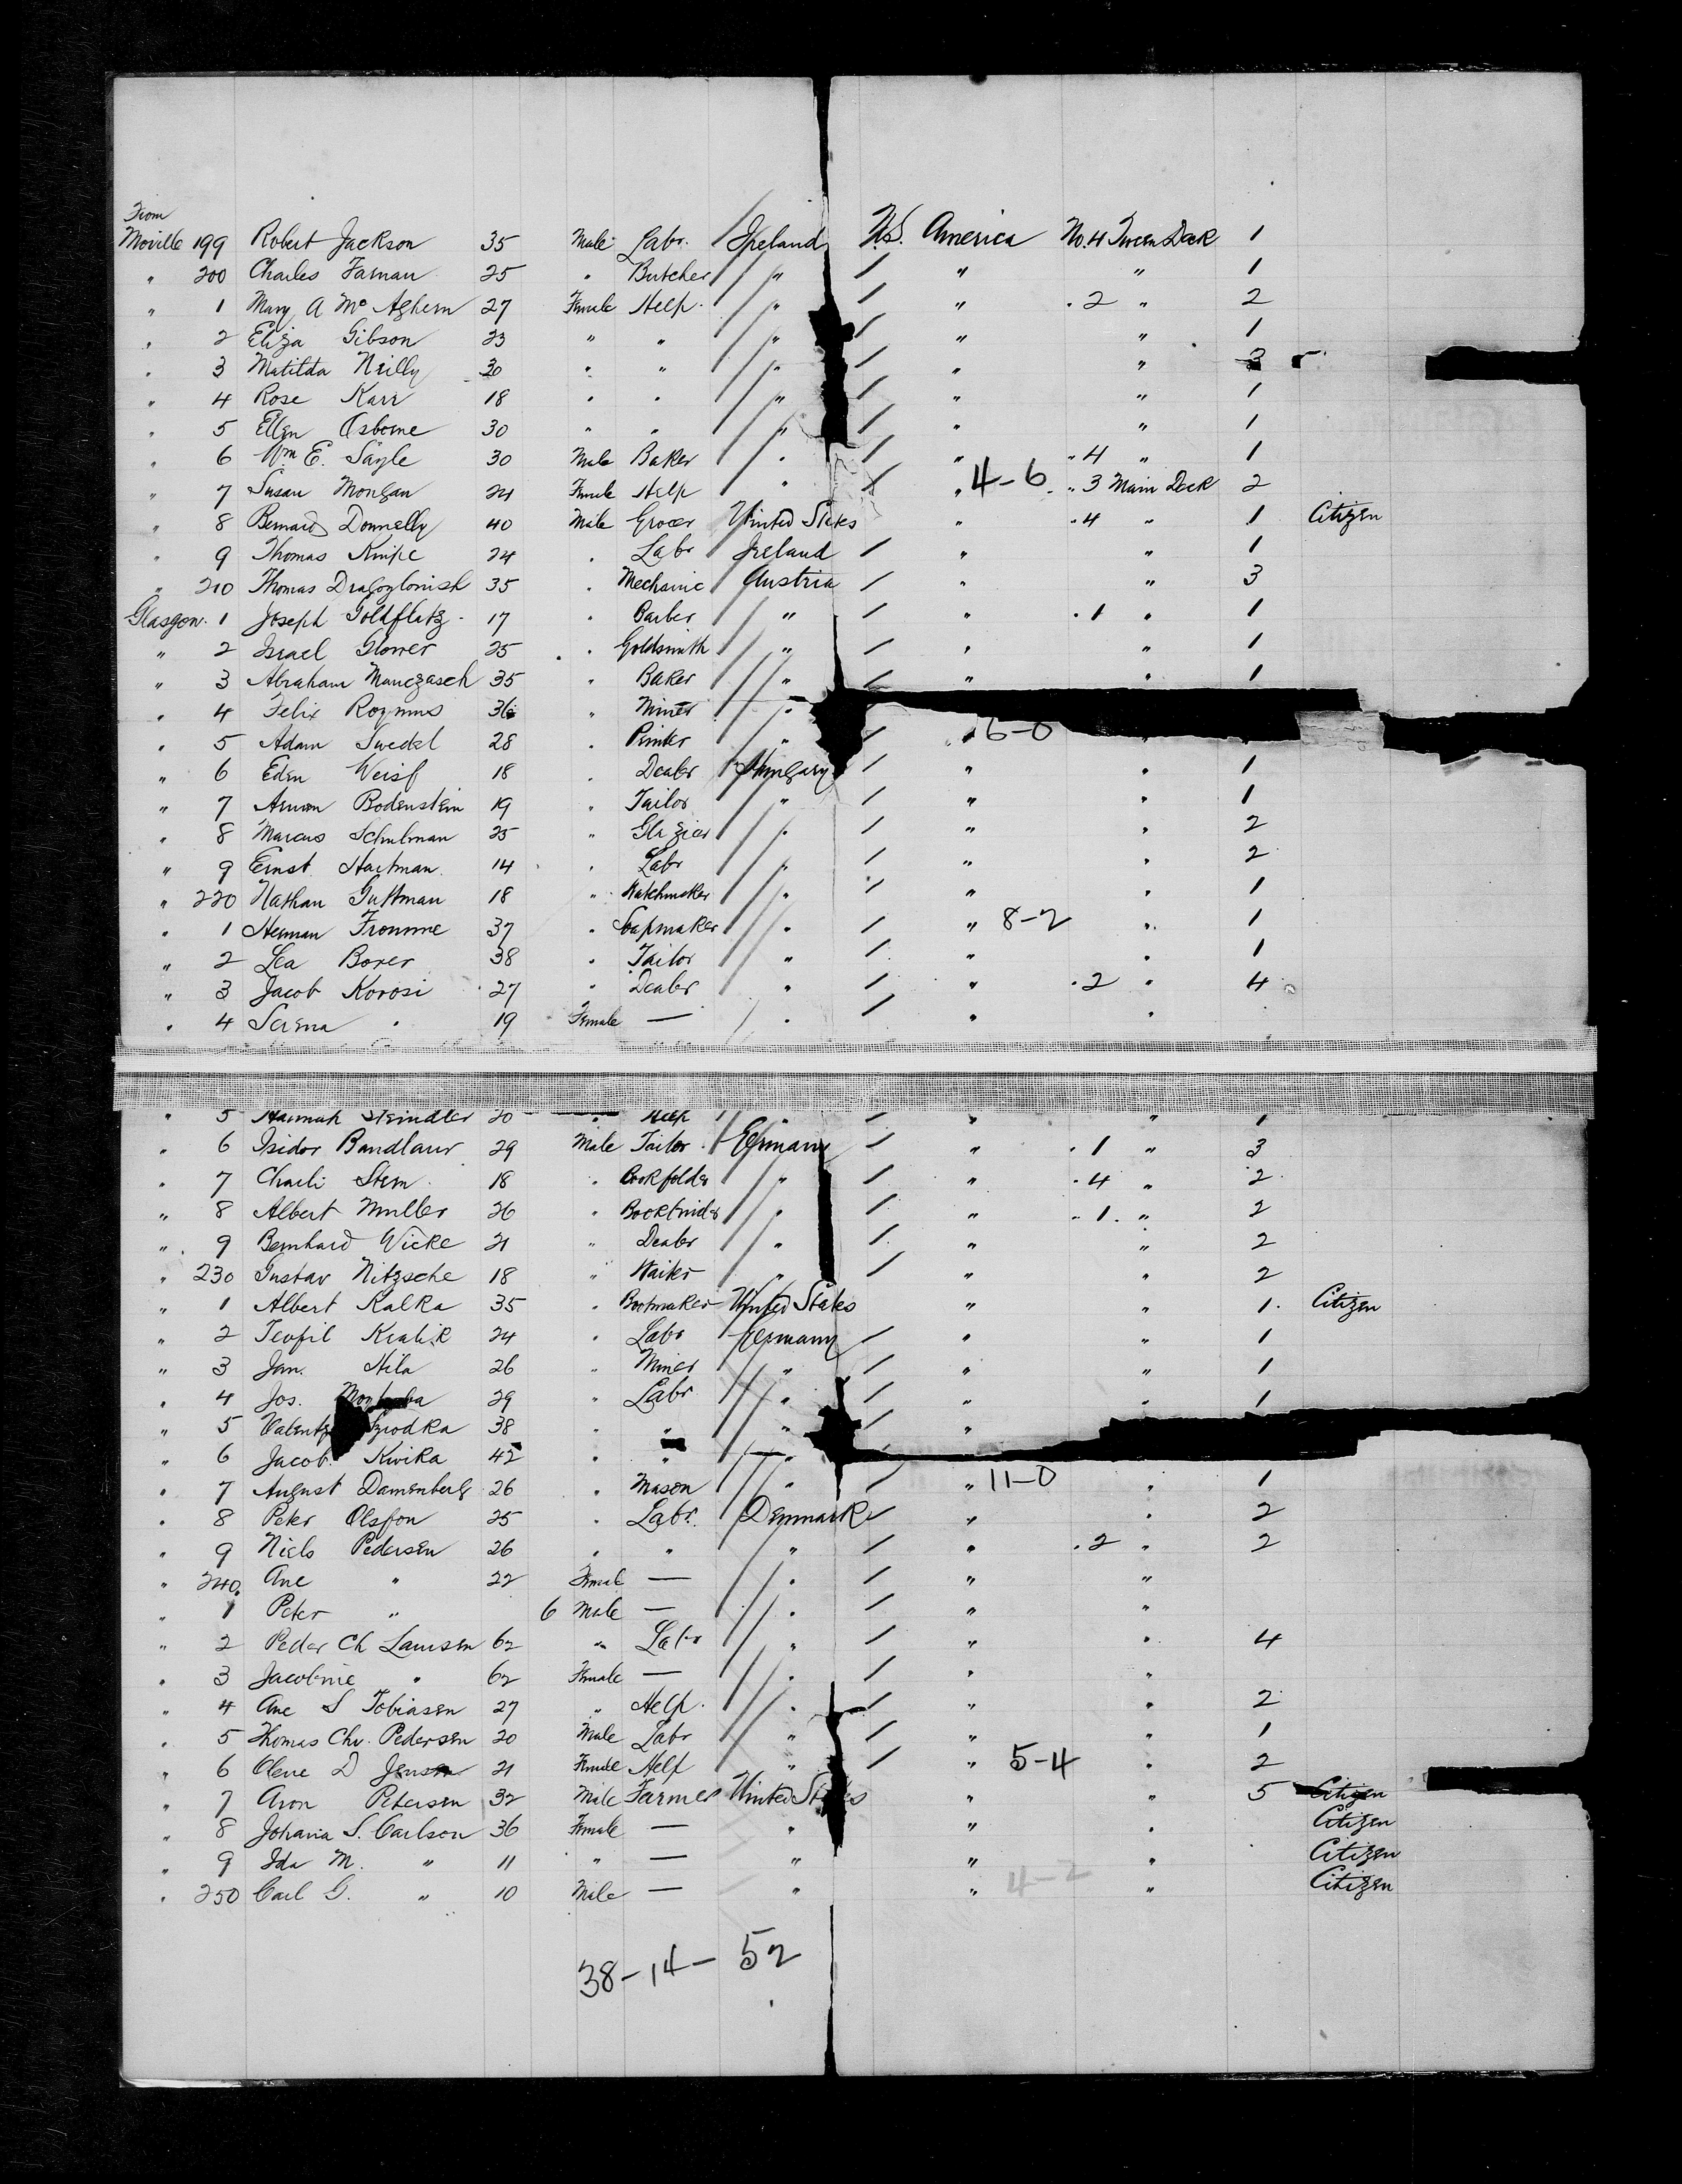 From
Moville 199 Robert Jackson 35 Male Labr. Ireland U.S. America No. 4 Tween Deck 1
" 200 Charles Farnan 25 " Butcher " / " " 1
" 1 Mary A Mc Aghern 27 Female Help. " / " . 2 " 2
" 2 Eliza Gibson 23 " " " / " " 1
" 3 Matilda Neilly 30 " " " / " " 3
" 4 Rose Karr 18 " " " / " " 1
" 5 Ellen Osborne 30 " " " / " " 1
" 6 Wm E. Sayle 30 Male Baker " / " " 4 " 1
" 7 Susan Mongan 24 Female Help " / " 4-6 " 3 Main Deck 2
" 8 Bernard Donnelly 40 Male Grocer United States " " 4 " 1 Citizen
" 9 Thomas Knipe 24 " Labr Ireland / " " 1
" 210 Thomas 35 " Mechanic Austria / " " 3
Glasgow. 1 Joseph Goldflatz 17 " Barber " / " . 1 " 1
" 2 Israel Glower 25 " Goldsmith " / " " 1
" 3 Abraham Manczasch 35 " Baker " / " " 1
" 4 Felix 36 " Miner "
" 5 Adam Swedel 28 " " / " 6-0
" 6 Eden Weisf 18 " Dealer Hungary / " " 1
" 7 Armin Bodenstein 19 " Tailor " / " " 1
" 8 Marcus Schulman 25 " Glazier " / " " 2
" 9 Ernst Hartman 14 " Labr " / " " 2
" 220 Nathan Guttman 18 " Watchmaker " / " " 1
" 1 Herman Fromme 37 " Soapmaker " / " 8-2 " 1
" 2 Lea Borer 38 " Tailor " / " " 1
" 3 Jacob Korosi 27 " Dealer " / " . 2 " 4
" 4 Serena " 19 Female — " / " "
" 5 Hannah Steindler 20 " Help " / " " 1
" 6 Isidor Bandlaur 29 Male Tailor Germany / " . 1 " 3
" 7 Charli Stern 18 " Bookfolder " / " . 4 " 2
" 8 Albert Muller 26 " Bookbinder " / " . 1. " 2
" 9 Bernhard Wicke 21 " Dealer " / " " 2
" 230 Gustav Nitzsche 18 " Waiter " / " " 2
" 1 Albert Kalka 35 " Bootmaker United States " " 1. Citizen
" 2 Teofil Kralik 24 " Labr Germany / " " 1
" 3 Jan. Hila 26 " Miner " / " " 1
" 4 Jos. 29 " Labr " / " " 1
" 5 38 " " " / "
" 6 Jacob Kwika 42 " " "
" 7 August Damenberg 26 " Mason " / " 11-0 " 1
" 8 Peter Olsfon 25 " Labr. Denmark / " " 2
" 9 Niels Pedersen 26 " " " / " . 2 " 2
" 240 Ane " 22 Female — " / " "
" 1 Peter " 6 Male — " / " "
" 2 Peder Ch Laursen 62 " Labr " / " " 4
" 3 Jacobine " 62 Female — " / " "
" 4 Ane S Tobiasen 27 " Help. " / " " 2
" 5 Thomas Chr. Pedersen 20 Male Labr " / " " 1
" 6 Olene D Jensen 21 Female Help " / " 5-4 " 2
" 7 Aron Petersen 32 Male Farmer United States " " 5 Citizen
" 8 Johana S. Carlson 36 Female — " " " Citizen
" 9 Ida M. " 11 " — " " " Citizen
" 250 Carl G. " 10 Male — " " 4-2 " Citizen
38-14- 52